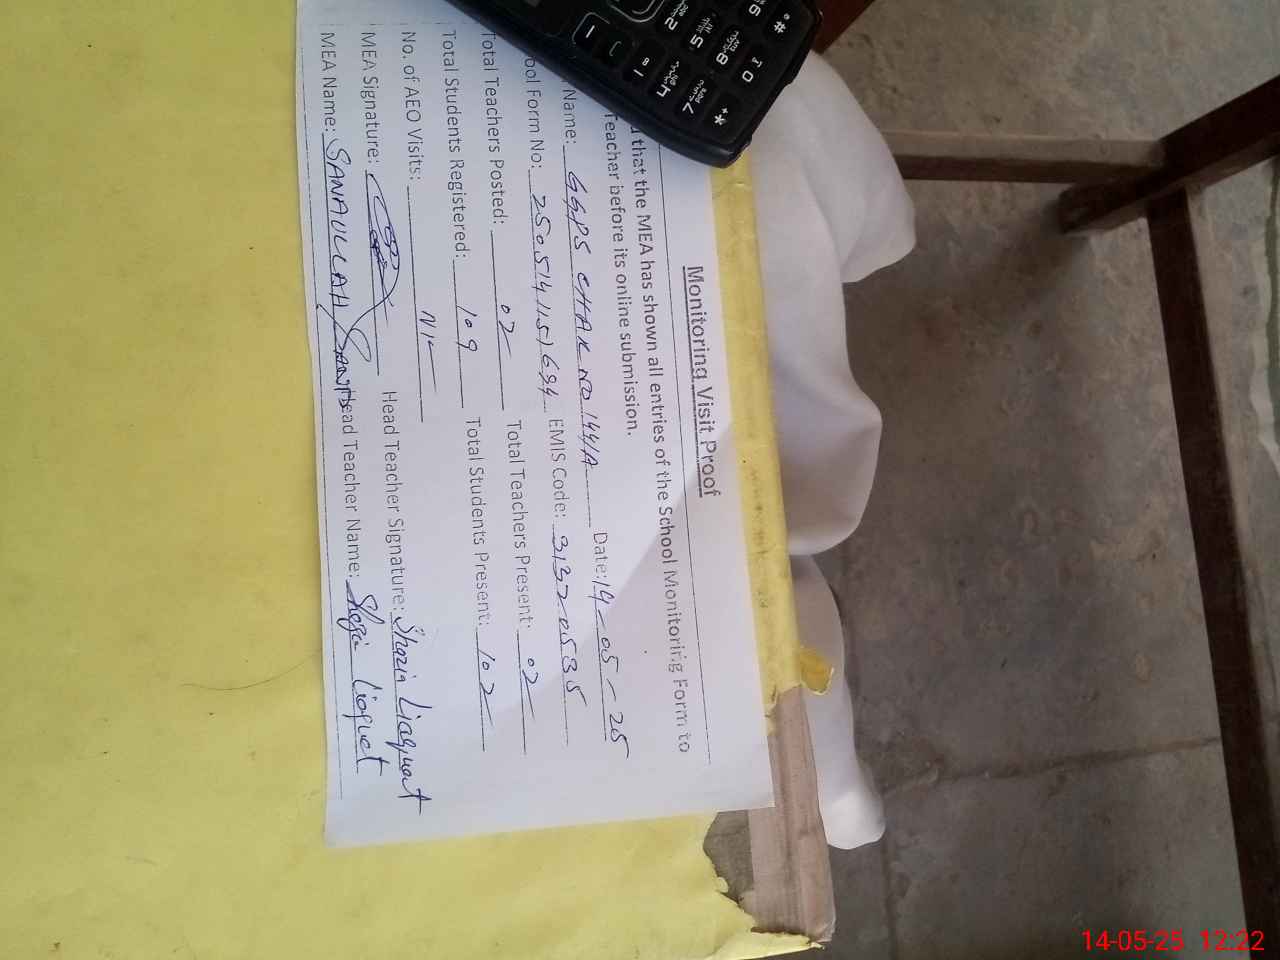 Monitoring Visit Proof
that the MEA has shown all entries of the School Monitoring Form to
Teacher before its online submission.
Name: GGPS CHAK NO 144/A Date: 14-05-25
Form No: EMIS Code: 31320535
Total Teachers Posted: 02 Total Teachers Present: 02
Total Students Registered: 109 Total Students Present: 102
No. of AEO Visits: Nil
MEA Signature: Head Teacher Signature: Shazia Liaquat
MEA Name: SANAULLAH Head Teacher Name: Shazia Liaquat
1
2
5
8
0
4
7
9
#
*
14-05-25 12:22